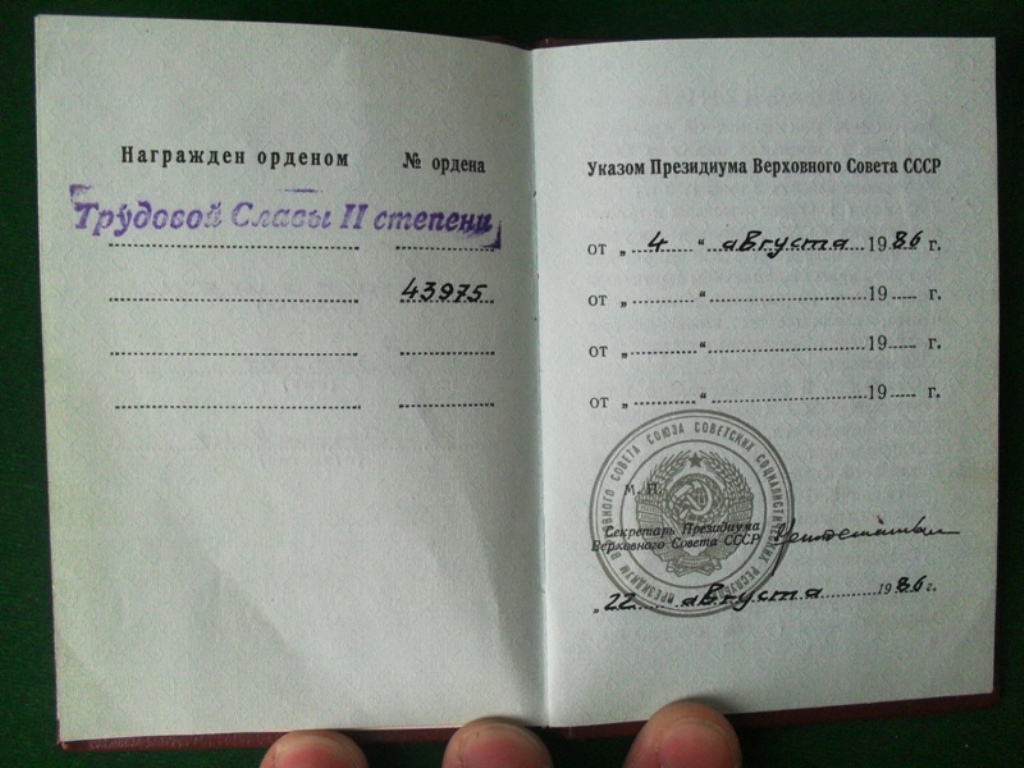 Награжден орденом № ордена
Трудовой Славы II степени
43975
Указом Президиума Верховного Совета СССР
от „ 4 “ августа 1986 г.
от „ “ 19 г.
от „ “ 19 г.
от „ “ 19 г.
ПРЕЗИДИУМ ВЕРХОВНОГО СОВЕТА СОЮЗА СОВЕТСКИХ СОЦИАЛИСТИЧЕСКИХ
М. П.
Секретарь Президиума
Верховного Совета СССР
„22 августа 1986 г.